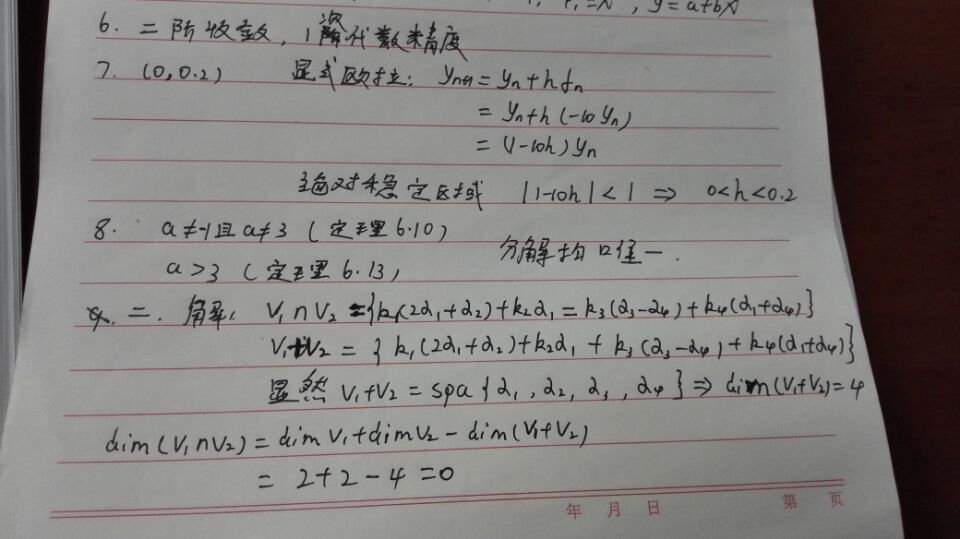 φ₁=x, y=a+bx
6. 二阶收敛, 1次代数精度
7. (0, 0.2) 显式欧拉: yₙ₊₁ = yₙ + h fₙ
= yₙ + h (-10 yₙ)
= (1-10h) yₙ
绝对稳定区域 |1-10h| < 1 ⇒ 0<h<0.2
8. a≠-1且a≠3 (定理6.10) 分解均唯一.
a>3 (定理6.13)
二. 解: V₁∩V₂ = {k₁(2α₁+α₂)+k₂α₁ = k₃(α₃-α₄)+k₄(α₁+α₄)}
V₁+V₂ = {k₁(2α₁+α₂)+k₂α₁ + k₃(α₃-α₄)+k₄(α₁+α₄)}
显然 V₁+V₂ = spa{α₁, α₂, α₃, α₄} ⇒ dim(V₁+V₂)=4
dim(V₁∩V₂) = dim V₁+dim V₂ - dim(V₁+V₂)
= 2+2-4 =0
年 月 日 第 页